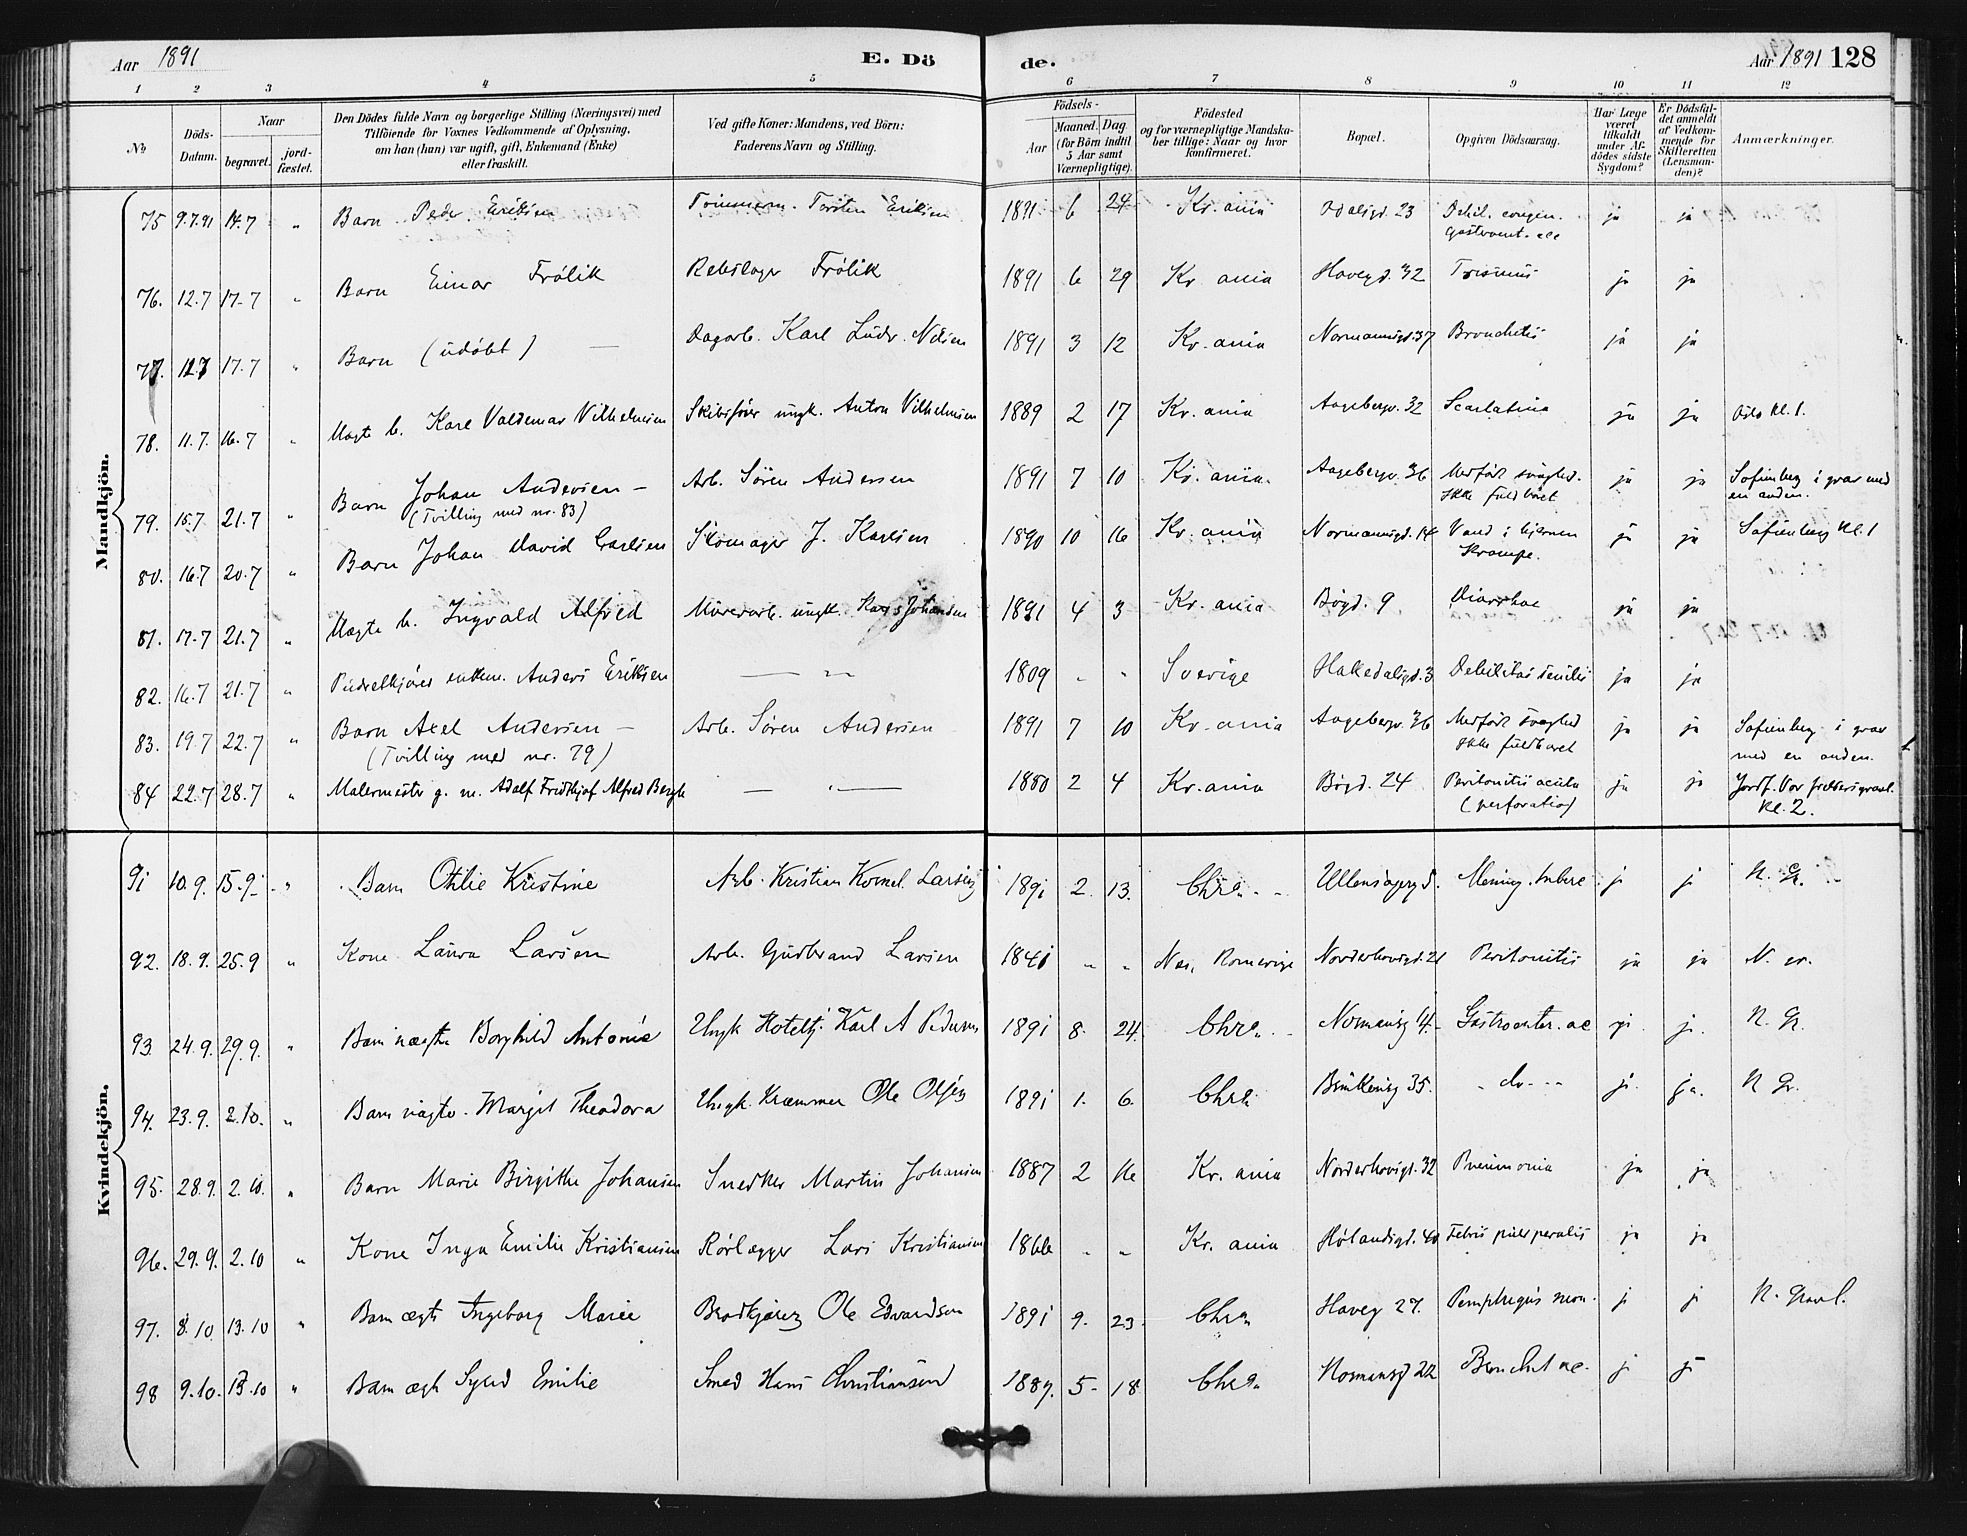 Aar 1891
E. Dö
de.
Aar 1891 128
1 2 3 4 5 6 7 8 9 10 11 12
No
Döds-Datum.
Naar
begravet.
jordfæstet.
Den Dödes fulde Navn og borgerlige Stilling (Næringsvei) med
Tilföiende for Voxnes Vedkommende af Oplysning,
om han (hun) var ugift, gift, Enkemand (Enke)
eller fraskilt.
Ved gifte Koner: Mandens, ved Börn:
Faderens Navn og Stilling.
Födsels-
Aar
Maaned. Dag
(for Börn indtil
5 Aar samt
Værnepligtige).
Födested
og for værnepligtige Mandskaber tillige: Naar og hvor
konfirmeret.
Bopæl.
Opgiven Dödsaarsag.
Har Læge
været
tilkaldt
under Afdödes sidste
Sygdom?
Er Dödsfaldet anmeldt
af Vedkommende for
Skifteretten
(Lensmanden)?
Anmærkninger.
Mandkjön.
75 9.7.91 14.7 " Barn Peder Eriksen Tømmerm. Torsten Eriksen 1891 6 24 Kr.ania Odalsgd. 23 Debil. congen. ja ja
Gastroent. ac
76. 12.7 17.7 " Barn Einar Frölik Rebslager Frölik 1891 6 29 Kr.ania Havegd. 32 Trismus ja ja
77. 12.7 17.7 " Barn (udöbt) — Dagarb. Karl Ludv. Nilsen 1891 3 12 Kr.ania Normannsgd. 37 Bronchitis ja ja
78. 11.7. 16.7 " Uægte b. Karl Valdemar Vilhelmsen Skibsfører ungk. Anton Vilhelmsen 1889 2 17 Kr.ania Aagebergv. 32 Scarlatina ja ja Oslo kl. 1.
79. 15.7 21.7 " Barn Johan Andersen — Arb. Sören Andersen 1891 7 10 Kr.ania. Aagebergv. 36 Medfödt svaghed. ja ja Sofienberg i grav med
(Tvilling med nr. 83) Ikke fuldbåret en anden.
80. 16.7 20.7 " Barn Johan David Carlsen Skomager J. Karlsen 1890 10 16 Kr.ania Normannsgd. 14 Vand i hjernen ja ja Sofienberg kl. 1
Krampe.
81. 17.7 21.7 " Uægte b. Ingvald Alfred Murerarb. ungk. Johansen 1891 4 3 Kr.ania Bögd. 9 Diarrhoe ja ja
82. 16.7 21.7 " Pudretkjörer enkem. Anders Eriksen — " — 1809 " " Sverige Hakedalsgd. 3 Debilitas senilis ja ja
83. 19.7 22.7 " Barn Axel Andersen — Arb. Sören Andersen 1891 7 10 Kr.ania Aagebergv. 36 Medfödt svaghed ja ja Sofienberg i grav
(Tvilling med nr. 79) Ikke fuldbaret med en anden.
84 22.7 28.7 " Malermester g. m. Adolf Fridthjof Alfred Bergh — " — 1850 2 4 Kr.ania Bögd. 24 Peritonitis acuta ja ja Jordf. Vor frelsers gravl.
(perforatio) kl. 2.
Kvindekjön.
91 10.9. 15.9. " Barn Othilie Kristine Arb. Kristian Kornel. Larsen 1891 2. 13. Chra. Ullensagerg 5. Mening. tuberc j. j. N. Gr.
92. 18.9. 25.9 " Kone Laura Larsen Arb. Gudbrand Larsen 1841 " " Nes, Romerige Norderhovsgd. 21 Peritonitis ja ja N. gr.
93. 24.9. 29.9. " Barn uægte Borghild Antonie Ungk Hotelkj. Karl A Pedersen 1891 8. 24. Chra. Normansg 14. Gastroenter. ac j. j. N. Gr.
94. 23.9. 2.10. " Barn uægte. Margit Theodora Ungk. Kræmmer Ole Olsen 1891 1. 6. Chra. 35. " do " j. ja. N Gr.
95. 28.9. 2.10. " Barn Marie Birgitte Johansen Snedker Martin Johansen 1887 2 16 Kr.ania Norderhovsgd. 32 Pneumonia ja ja
96. 29.9. 2.10 " Kone Inga Emilie Kristiansen Rörlægger Lars Kristiansen 1866 " " Kr.ania Hölandsgd. 40 Febris puerperalis ja ja
97. 8.10. 13.10 " Barn ægte Ingeborg Marie Brødkjører Ole Edvardsen 1891 9. 23. Chra. Haveg 27. Pemphigus neon. j. j. N. Gravl.
98 9.10. 13.10 " Barn ægte Sigrid Emilie Smed Hans Christiansen 1887. 5. 18. Chra. Normansg 22 Bronchit ac. j. j.